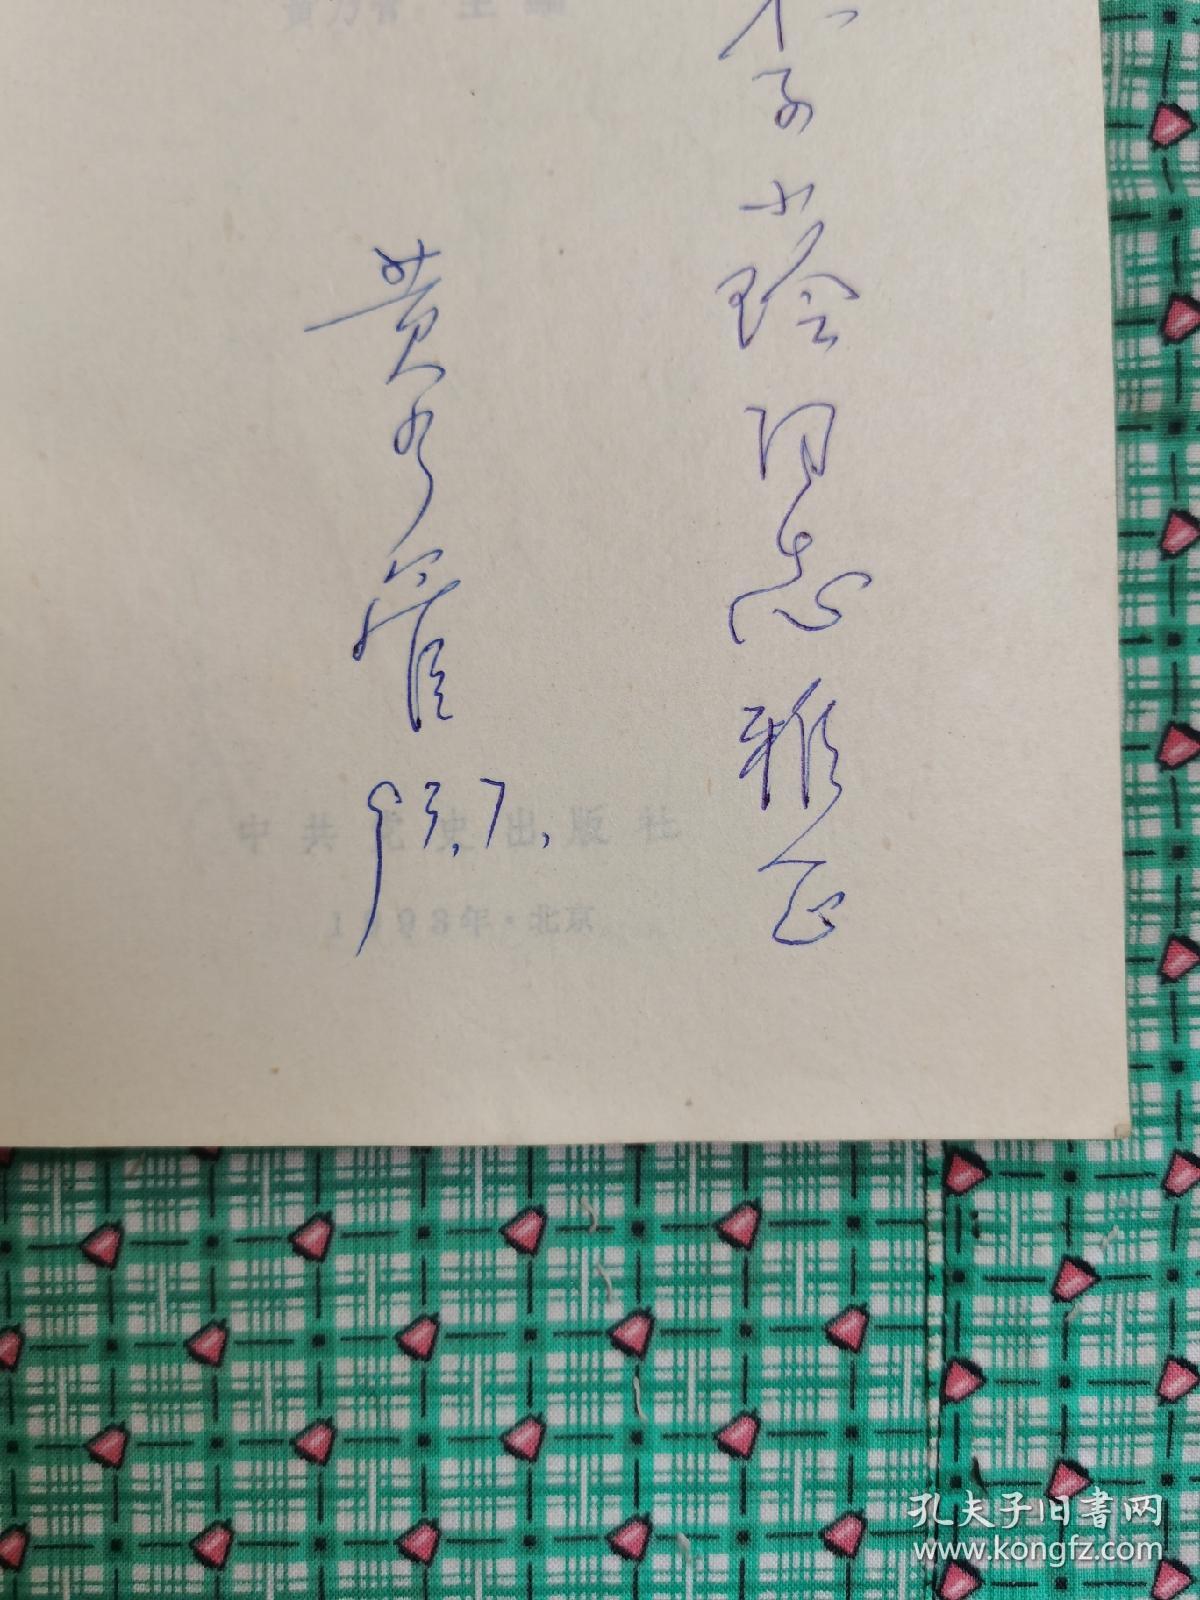 李小玲同志雅正
黄乃管
93.7.
中共党史出版社
1993年·北京
孔夫子旧書网
www.kongfz.com